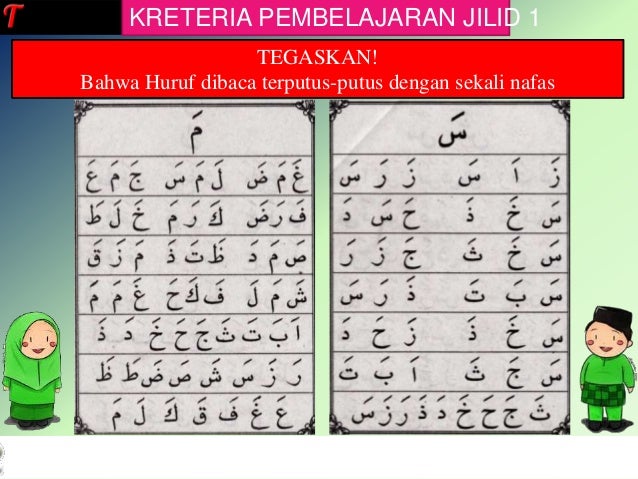 T
KRETERIA PEMBELAJARAN JILID 1
TEGASKAN!
Bahwa Huruf dibaca terputus-putus dengan sekali nafas
سَ
زَ اَ سَ زَ رَ سَ
سَ خَ ذَ حَ سَ دَ
سَ خَ ثَ جَ زَ رَ
سَ بَ تَ ذَ رَ سَ
سَ خَ ذَ زَ حَ دَ
سَ جَ ثَ اَ بَ تَ
ثَ جَ حَ خَ دَ ذَ رَ زَ سَ
مَ
غَ مَ ضَ لَ مَ سَ جَ مَ عَ
فَ رَ ضَ كَ رَ مَ خَ لَ طَ
صَ مَ دَ ظَ تَ ذَ مَ زَ قَ
شَ مَ لَ فَ كَ حَ غَ مَ مَ
اَ بَ تَ ثَ جَ حَ خَ دَ ذَ
رَ زَ سَ شَ صَ ضَ طَ ظَ
عَ غَ فَ قَ كَ لَ مَ